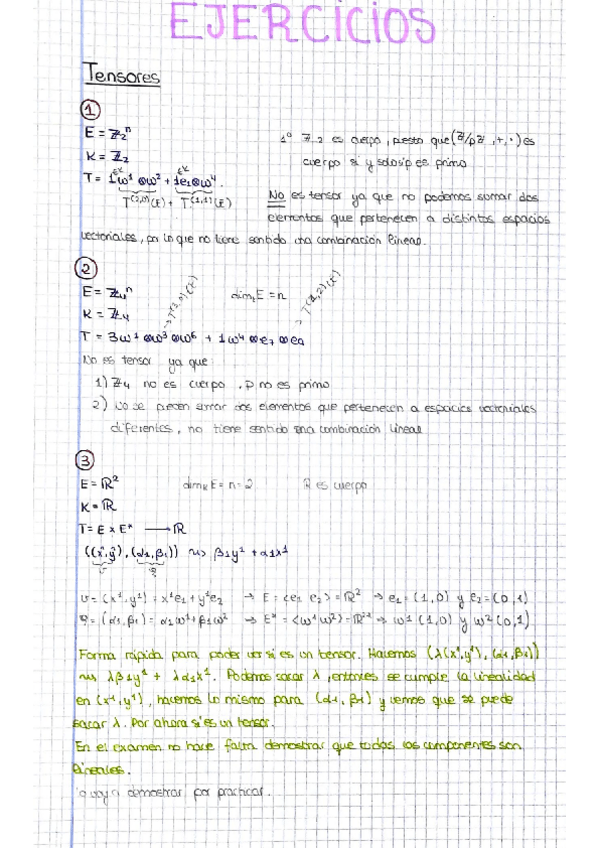 EJERCICIOS
Tensores
①
E = ℤ₂ⁿ
K = ℤ₂
1º ℤ₂ es cuerpo, puesto que (ℤ/pℤ, +, ·) es
cuerpo si y solo si p es primo
T = 1ω¹ ⊗ ω² + 1e₁ ⊗ ω⁴.
∈K ∈K
T^(2,0)(E) + T^(1,1)(E)
No es tensor ya que no podemos sumar dos
elementos que pertenecen a distintos espacios
vectoriales, por lo que no tiene sentido una combinación lineal.
②
E = ℤ₄ⁿ dim E = n
K = ℤ₄
T = 3ω¹ ⊗ ω³ ⊗ ω⁶ + 1ω⁴ ⊗ e₇ ⊗ e
→ T^(3,0)(E) → T^(1,2)(E)
No es tensor ya que:
1) ℤ₄ no es cuerpo, p no es primo
2) No se pueden sumar dos elementos que pertenecen a espacios vectoriales
diferentes, no tiene sentido una combinación lineal
③
E = ℝ² dimₖE = n = 2 ℝ es cuerpo
K = ℝ
T = E × E* → ℝ
((x¹,y¹), (α₁,β₁)) ⇝ β₁y¹ + α₁x¹
v = (x¹,y¹) = x¹e₁ + y¹e₂ → E = <e₁ e₂> = ℝ² → e₁ = (1,0) y e₂ = (0,1)
= (α₁,β₁) = α₁ω¹ + β₁ω² → E* = <ω¹ω²> = ℝ²* → ω¹ (1,0) y ω² (0,1)
Forma rápida para poder ver si es un tensor. Hacemos (λ(x¹,y¹), (α₁,β₁))
⇝ λβ₁y¹ + λα₁x¹. Podemos sacar λ, entonces se cumple la linealidad
en (x¹,y¹), hacemos lo mismo para (α₁,β₁) y vemos que se puede
sacar λ. Por ahora si es un tensor.
En el examen no hace falta demostrar que todas las componentes son
lineales.
voy a demostrar por practicar.